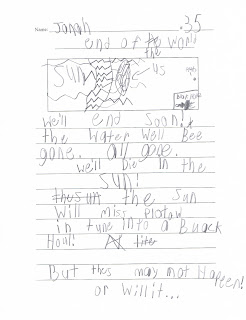 Name: Jonah .35
end of the world
the
Sun us
We'll end Soon!
the water Well Bee
gone. all gone.
we'll Die in the
sun!
the sun the Sun
Will miss Plotow
in tune into a Buack
Houl!
But thes may not Hapeen!
or Will it...